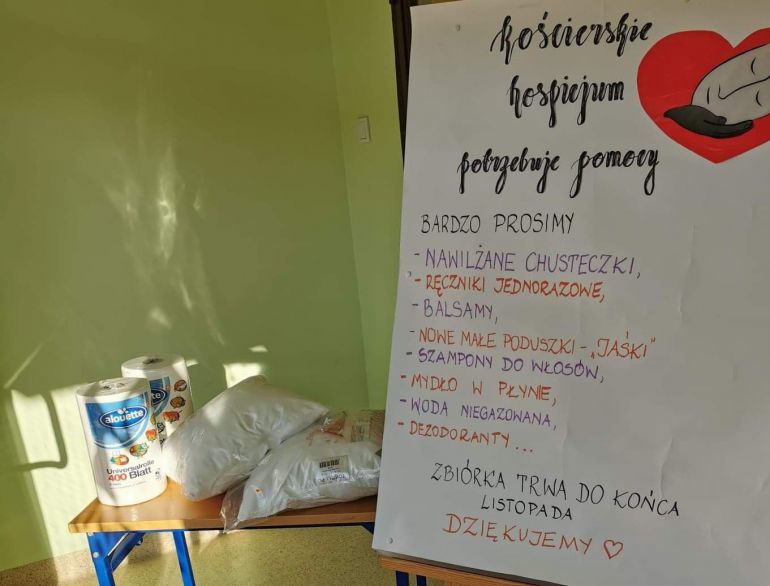 Kościerskie
hospicjum
potrzebuje pomocy
BARDZO PROSIMY
- NAWILŻANE CHUSTECZKI,
- RĘCZNIKI JEDNORAZOWE,
- BALSAMY,
- NOWE MAŁE PODUSZKI - „JAŚKI"
- SZAMPONY DO WŁOSÓW,
- MYDŁO W PŁYNIE,
- WODA NIEGAZOWANA,
- DEZODORANTY...
ZBIÓRKA TRWA DO KOŃCA
LISTOPADA
DZIĘKUJEMY ♡
alouette
Universalrolle
400 Blatt
alouette